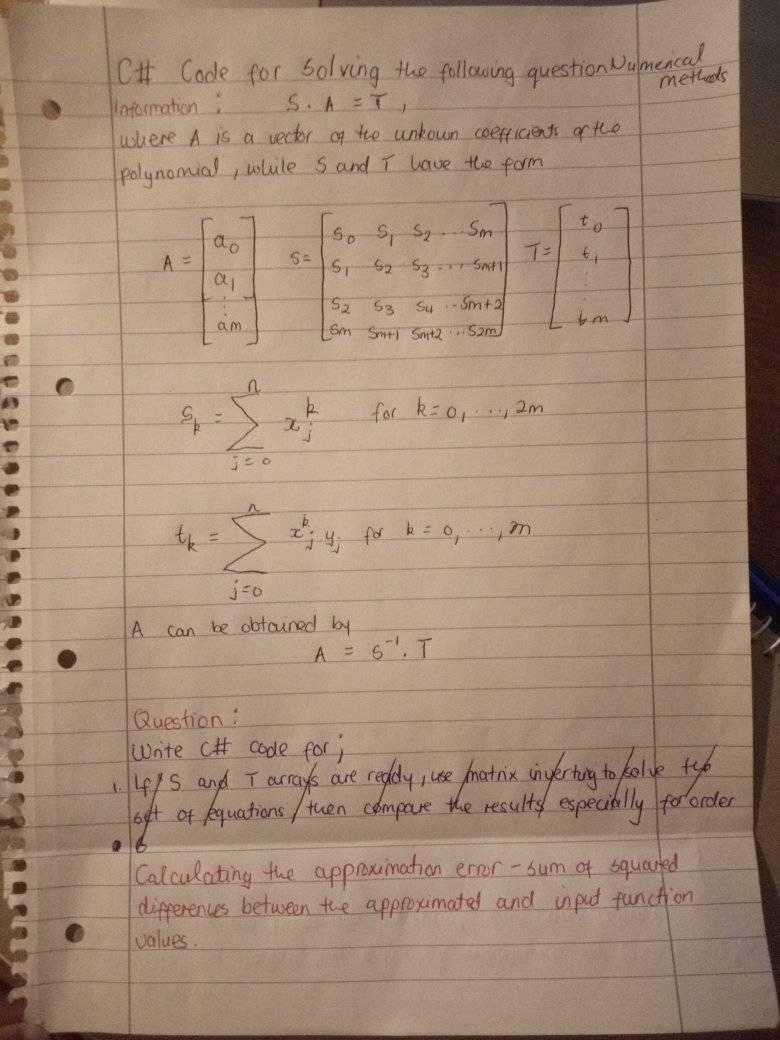 C# Code for Solving the following question Numerical
methods
Information : S . A = T ,
where A is a vector of the unkown coefficients of the
polynomial , while S and T have the form
A = [ a0 a1 : am ]
S = [ S0 S1 S2 ... Sm
S1 S2 S3 ... Sm+1
S2 S3 S4 ... Sm+2
Sm Sm+1 Sm+2 ... S2m ]
T = [ t0 t1 : bm ]
Sk = ∑ j=0 n xj^k for k = 0, ..., 2m
tk = ∑ j=0 n xj^k yj for k = 0, ..., m
A can be obtained by
A = S^-1 . T
Question :
Write C# code for ;
1. If S and T arrays are ready , use matrix inverting to solve the
set of equations , then compare the results especially for order
6
Calculating the approximation error - sum of squared
differences between the approximated and input function
values .